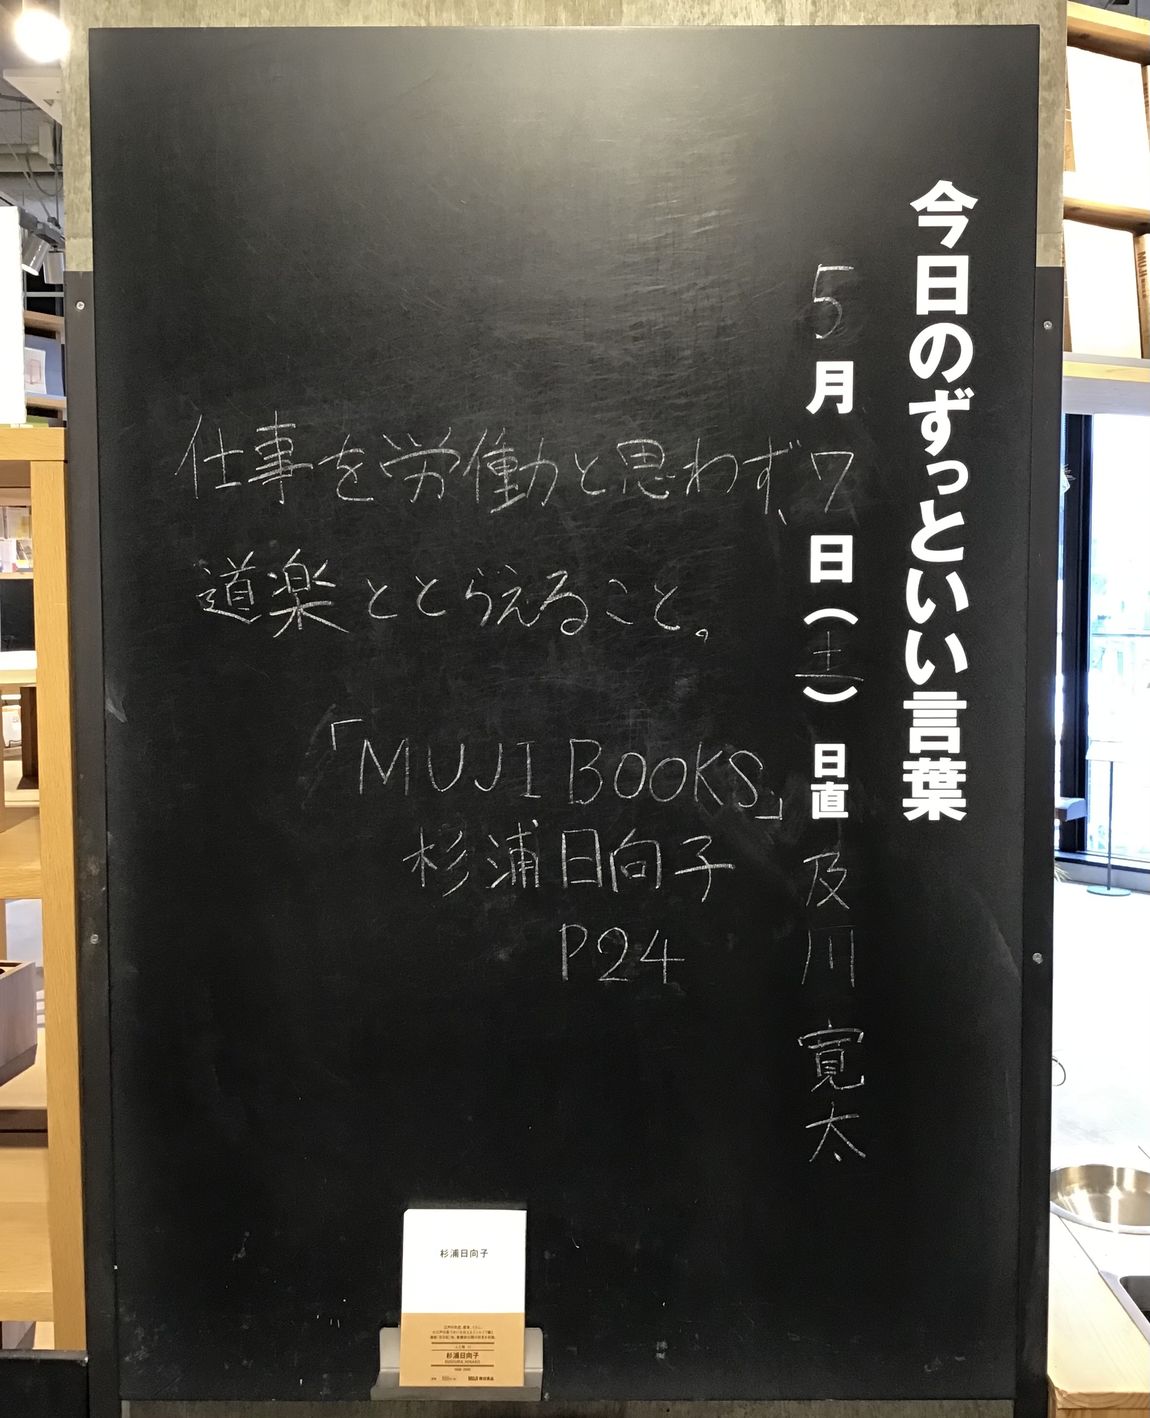 今日のずっといい言葉
5月7日(土) 日直 及川 寛太
仕事を労働と思わず、
道楽ととらえること。
「MUJI BOOKS」
杉浦日向子
P24
杉浦日向子
杉浦日向子